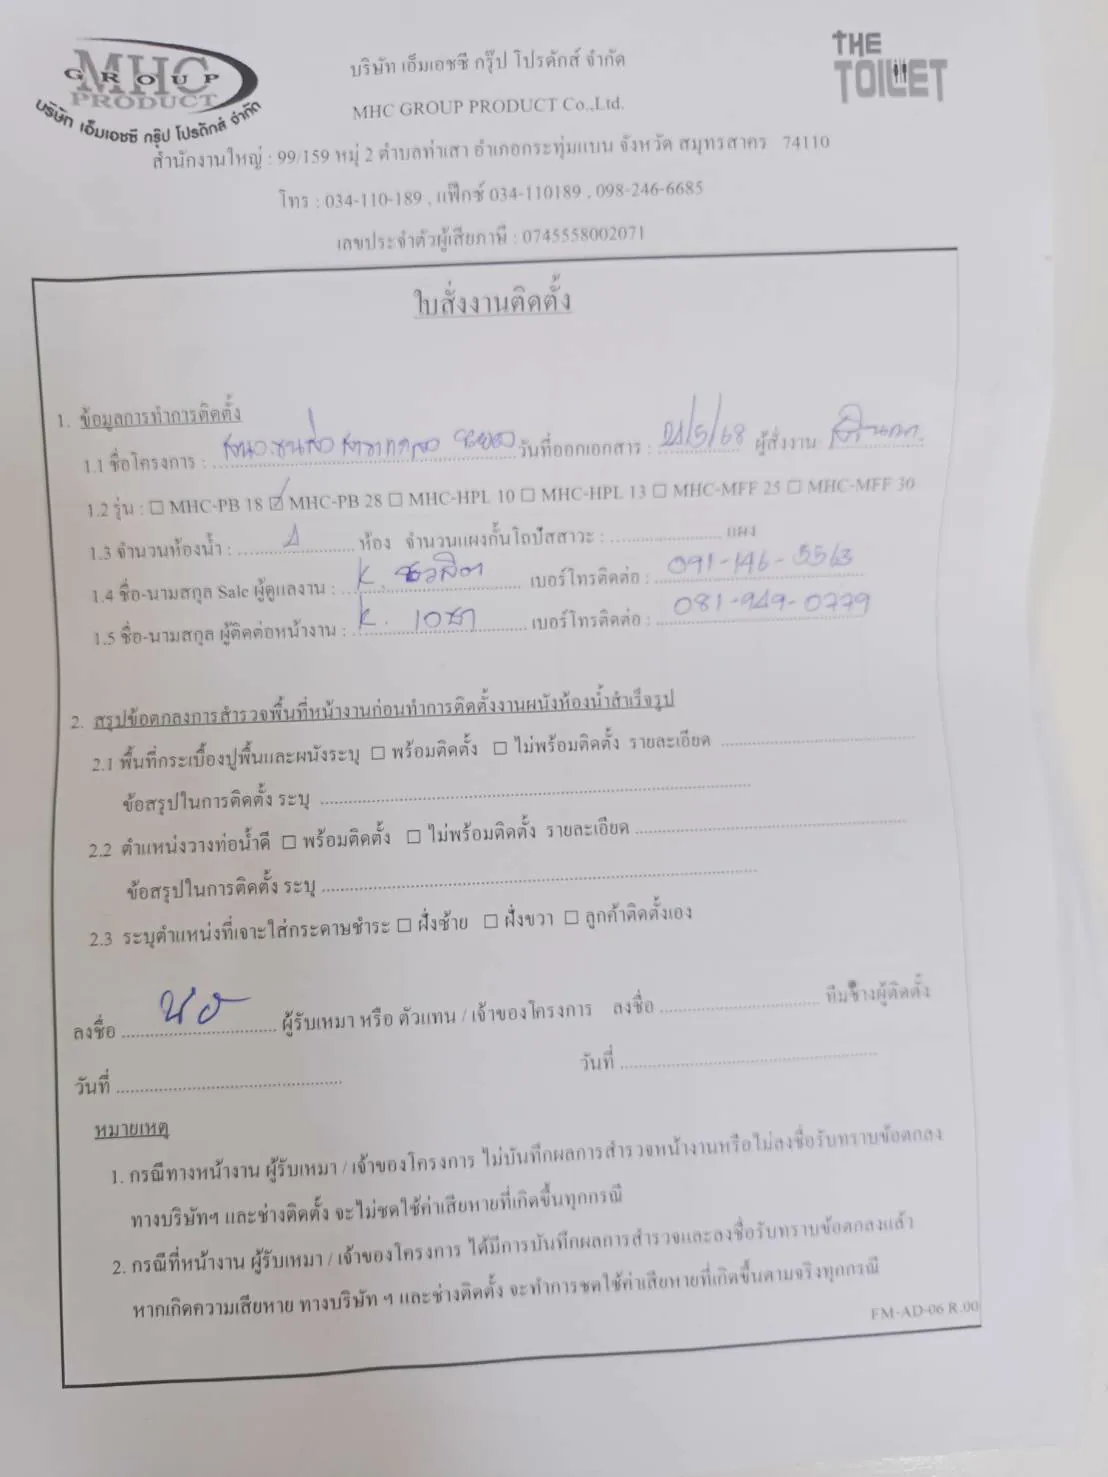 MHC
GROUP
PRODUCT
บริษัท เอ็มเอชซี กรุ๊ป โปรดักส์ จำกัด
THE
TOILET
บริษัท เอ็มเอชซี กรุ๊ป โปรดักส์ จำกัด
MHC GROUP PRODUCT Co.,Ltd.
สำนักงานใหญ่ : 99/159 หมู่ 2 ตำบลท่าเสา อำเภอกระทุ่มแบน จังหวัด สมุทรสาคร 74110
โทร : 034-110-189 , แฟ๊กซ์ 034-110189 , 098-246-6685
เลขประจำตัวผู้เสียภาษี : 0745558002071
ใบสั่งงานติดตั้ง
1. ข้อมูลการทำการติดตั้ง
1.1 ชื่อโครงการ : วันที่ออกเอกสาร : 21/5/68 ผู้สั่งงาน
1.2 รุ่น : ☐ MHC-PB 18 ☑ MHC-PB 28 ☐ MHC-HPL 10 ☐ MHC-HPL 13 ☐ MHC-MFF 25 ☐ MHC-MFF 30
1.3 จำนวนห้องน้ำ : ห้อง จำนวนแผงกั้นโถปัสสาวะ : แผง
1.4 ชื่อ-นามสกุล Sale ผู้ดูแลงาน : K. ชวลิต เบอร์โทรติดต่อ : 091-146-5563
1.5 ชื่อ-นามสกุล ผู้ติดต่อหน้างาน : K. เบอร์โทรติดต่อ : 081-949-0779
2. สรุปข้อตกลงการสำรวจพื้นที่หน้างานก่อนทำการติดตั้งงานผนังห้องน้ำสำเร็จรูป
2.1 พื้นที่กระเบื้องปูพื้นและผนังระบุ ☐ พร้อมติดตั้ง ☐ ไม่พร้อมติดตั้ง รายละเอียด
ข้อสรุปในการติดตั้ง ระบุ
2.2 ตำแหน่งวางท่อน้ำดี ☐ พร้อมติดตั้ง ☐ ไม่พร้อมติดตั้ง รายละเอียด
ข้อสรุปในการติดตั้ง ระบุ
2.3 ระบุตำแหน่งที่เจาะใส่กระดาษชำระ ☐ ฝั่งซ้าย ☐ ฝั่งขวา ☐ ลูกค้าติดตั้งเอง
ลงชื่อ ผู้รับเหมา หรือ ตัวแทน / เจ้าของโครงการ ลงชื่อ ทีมช่างผู้ติดตั้ง
วันที่ วันที่
หมายเหตุ
1. กรณีทางหน้างาน ผู้รับเหมา / เจ้าของโครงการ ไม่บันทึกผลการสำรวจหน้างานหรือไม่ลงชื่อรับทราบข้อตกลง
ทางบริษัทฯ และช่างติดตั้ง จะไม่ชดใช้ค่าเสียหายที่เกิดขึ้นทุกกรณี
2. กรณีที่หน้างาน ผู้รับเหมา / เจ้าของโครงการ ได้มีการบันทึกผลการสำรวจและลงชื่อรับทราบข้อตกลงแล้ว
หากเกิดความเสียหาย ทางบริษัท ฯ และช่างติดตั้ง จะทำการชดใช้ค่าเสียหายที่เกิดขึ้นตามจริงทุกกรณี
FM-AD-06 R.00